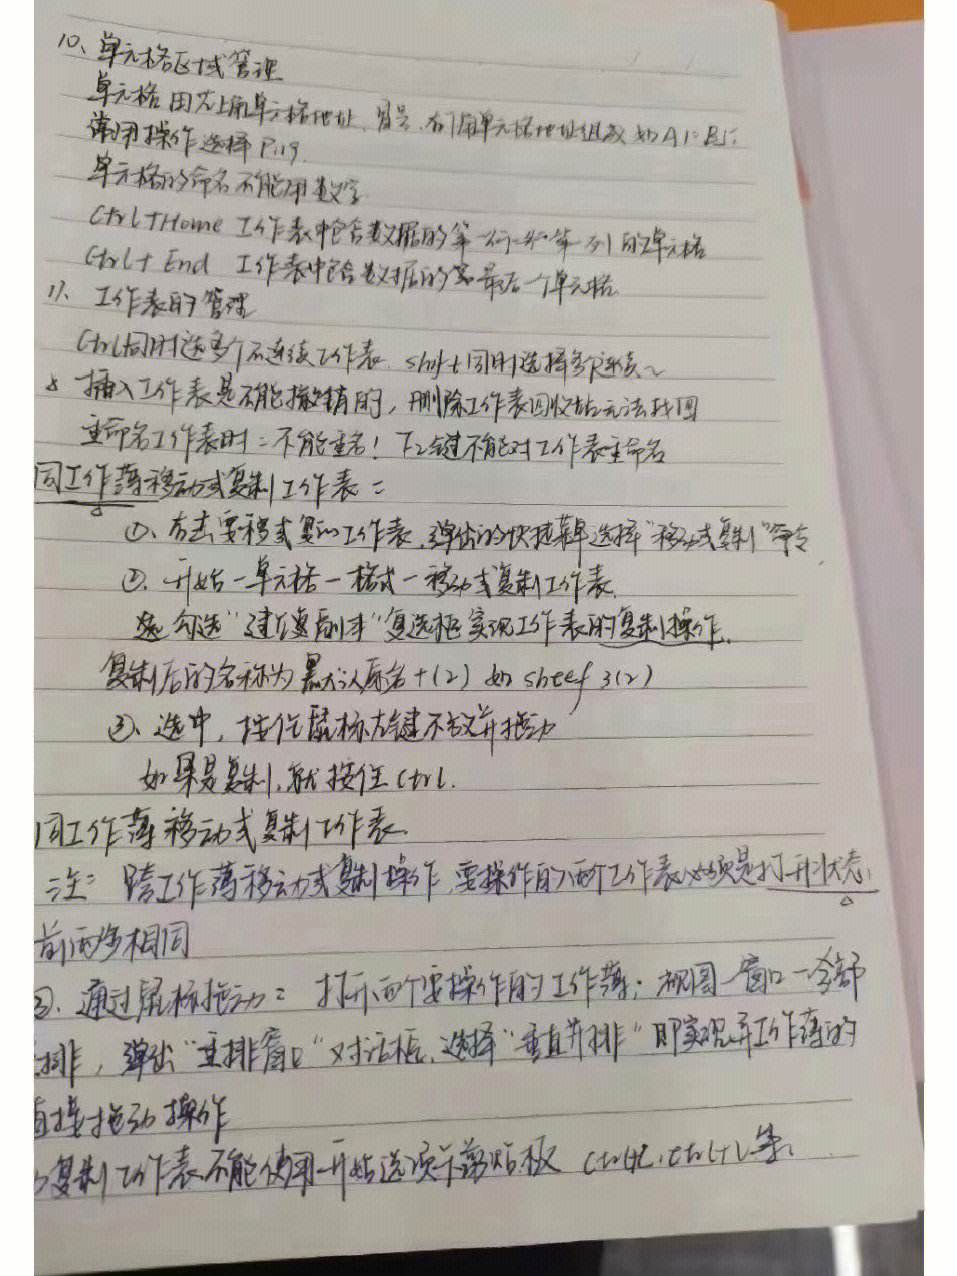 10、单元格区域管理
单元格由左上角单元格地址、冒号、右下角单元格地址组成 如A1:B5:
常用操作选择P119.
单元格的命名不能用数字
Ctrl+Home 工作表中包含数据的第一行和第一列的单元格
Ctrl+End 工作表中包含数据的最后一个单元格
11、工作表的管理
Ctrl同时选多个不连续工作表. shift同时选择多个连续~
插入工作表是不能撤销的，删除工作表回收站无法找回
重命名工作表时:不能重名！F2键不能对工作表重命名
同工作薄移动或复制工作表:
①、右击要移或复的工作表,弹出的快捷菜单选择"移动或复制"命令
②、开始一单元格一格式一移动或复制工作表.
勾选"建立副本"复选框实现工作表的复制操作.
复制后的名称为默认原名+(2) 如sheet3(2)
③、选中，按住鼠标左键不放并拖动
如果是复制,就按住Ctrl.
同工作薄移动或复制工作表.
注:跨工作薄移动或复制操作,要操作的两个工作表必须是打开状态.
前两步相同
③、通过鼠标拖动:打开两个要操作的工作薄;视图一窗口一全部
排，弹出"重排窗口"对话框,选择"垂直并排"即实现异工作薄的
直接拖动操作
复制工作表不能使用开始选项卡剪贴板 Ctrl+C,Ctrl+V等.